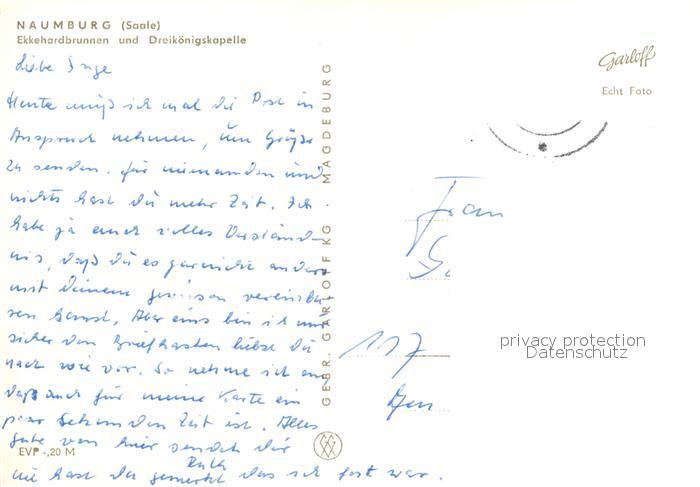 NAUMBURG (Saale)
Ekkehardbrunnen und Dreikönigskapelle
Garloff
Echt Foto
Liebe Inge
Heute muß ich mal die Post in
Anspruch nehmen, um Grüße
zu senden. für niemanden und
nichts hast du mehr Zeit. Ich
habe ja auch volles Verständ-
nis, daß du es garnicht anders
mit deinem gewissen vereinba-
ren kannst. Aber eins bin ich mir
sicher den Briefkasten liebst du
nach wie vor. So nehme ich an
daß auch für meine Karte ein
paar Sekunden Zeit ist. Alles
gute von hier sendet dir
Ruth
nie hast du gemerkt das ich fort war.
EVP -,20 M
GEBR. GARLOFF KG MAGDEBURG
Frau
117
privacy protection
Datenschutz